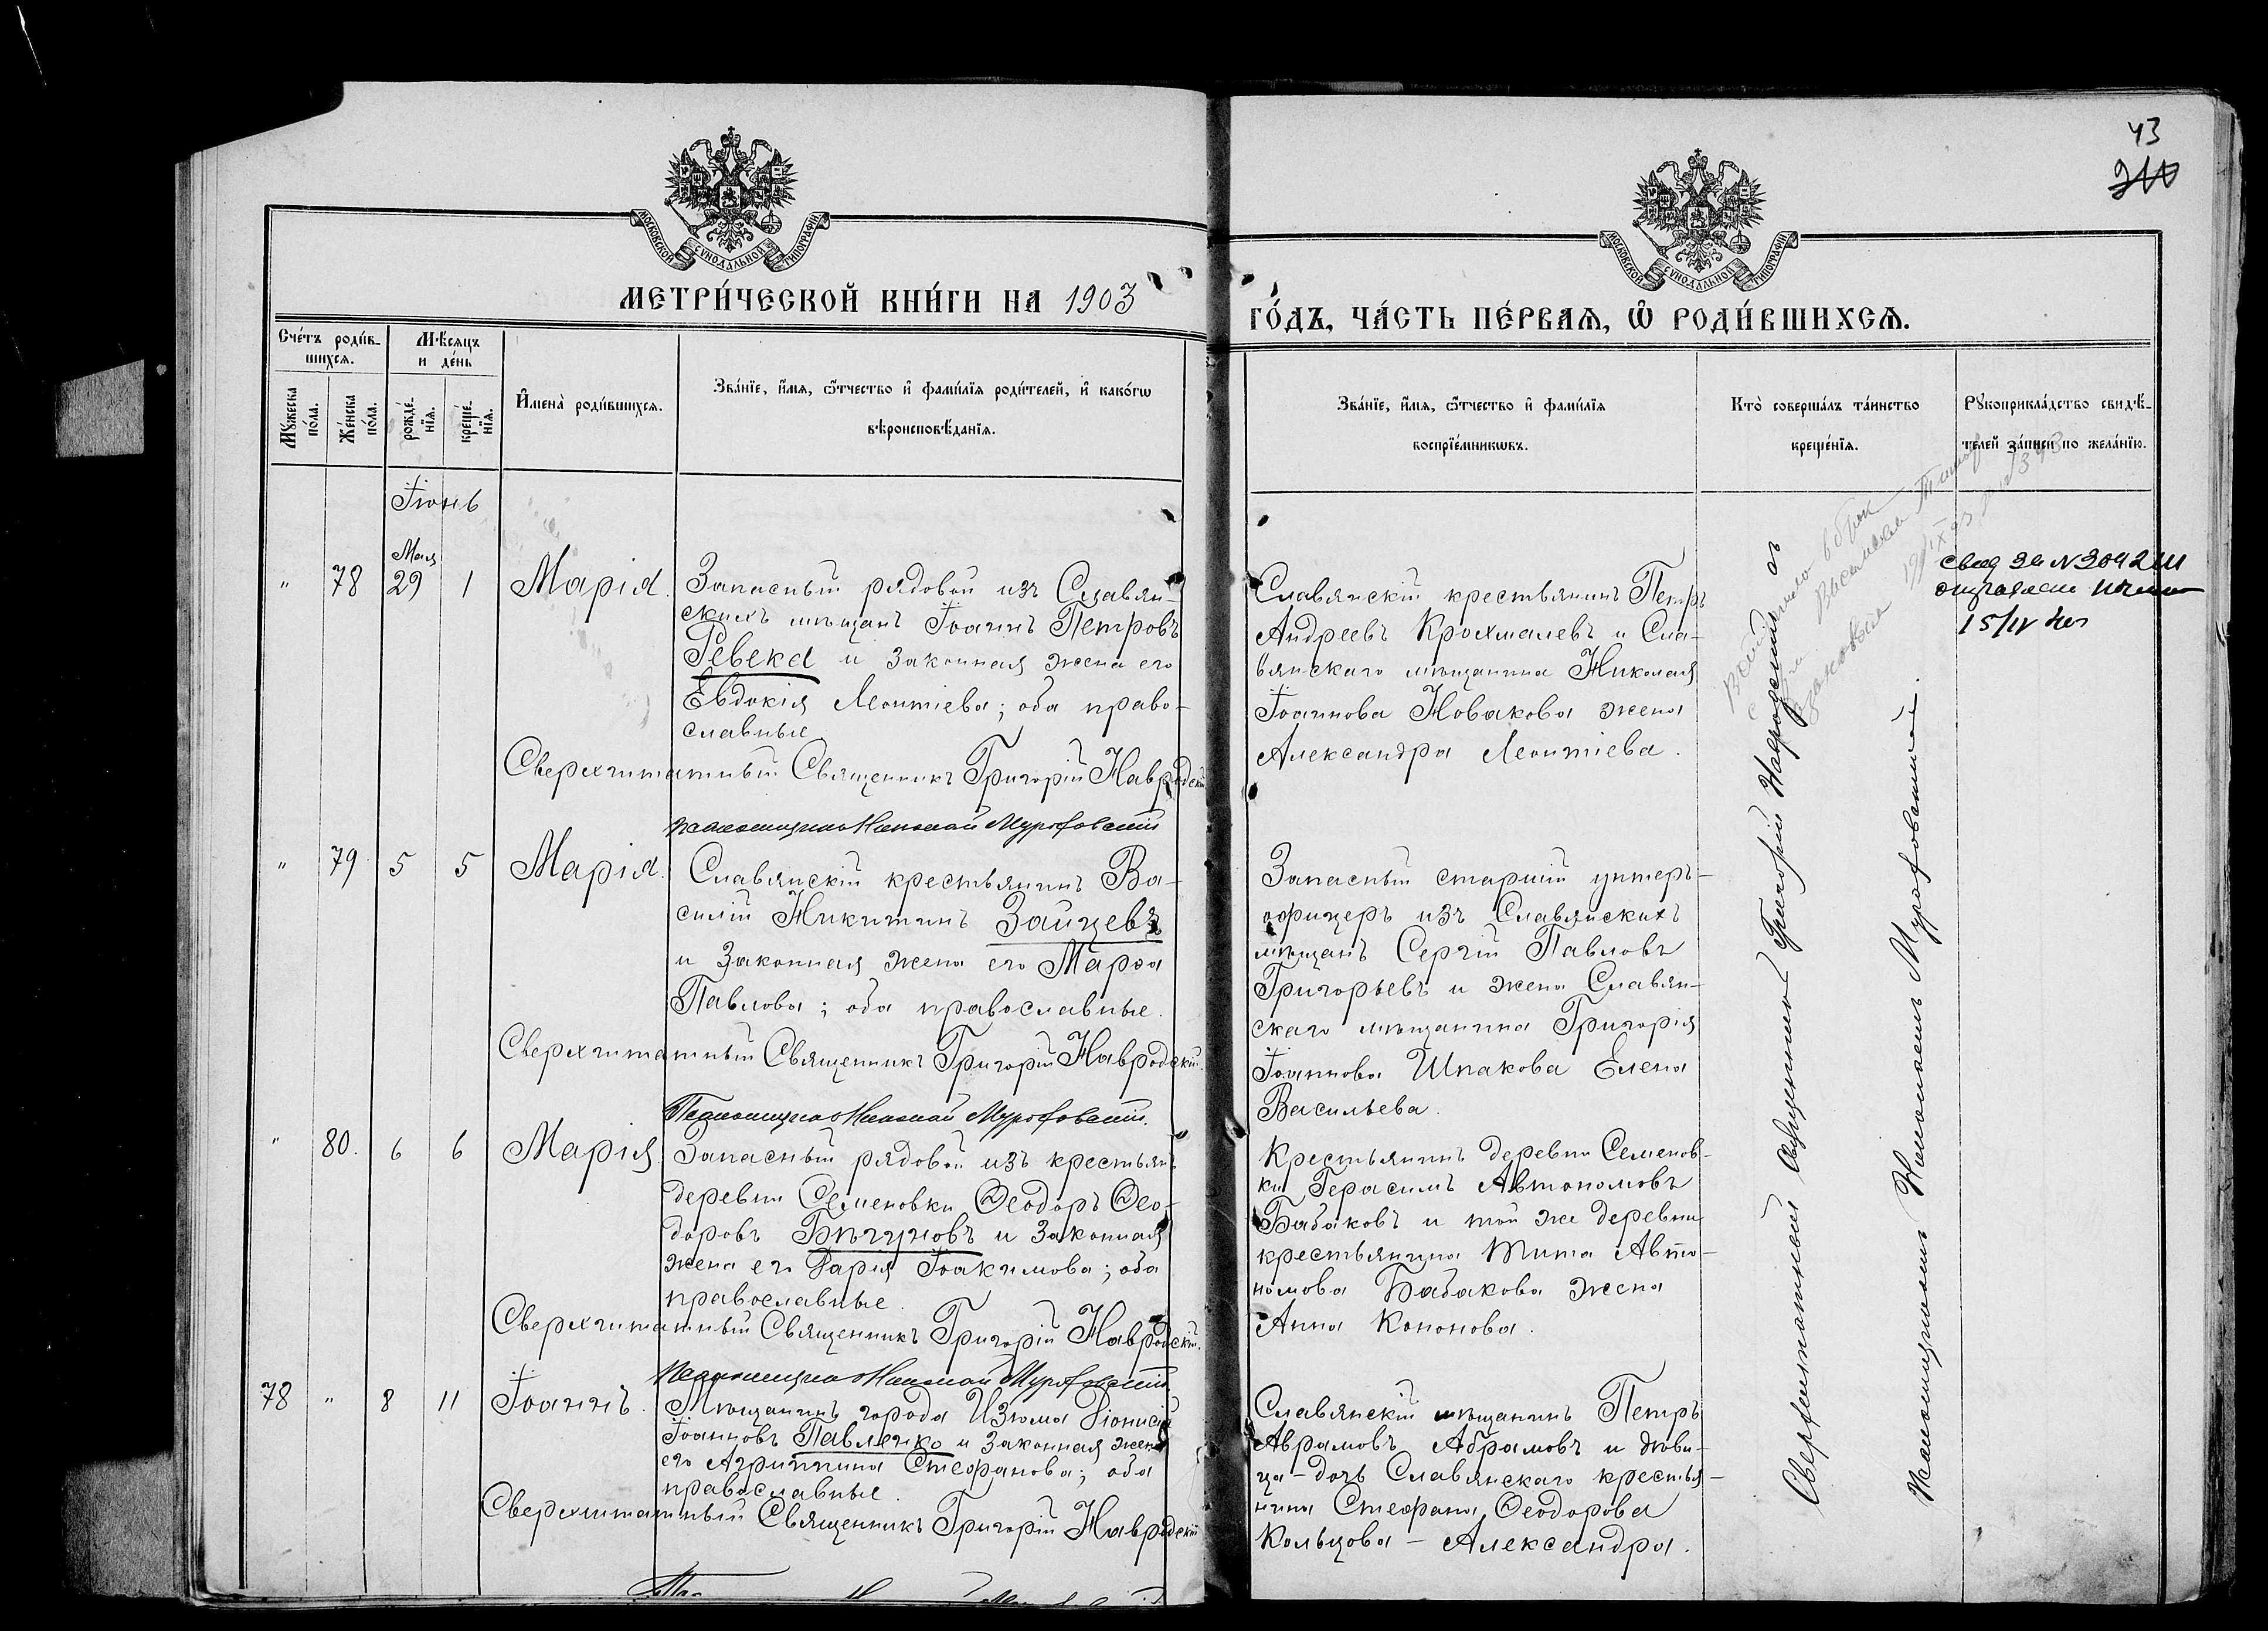 43
МОСКОВСКОЙ СѴНОДАЛЬНОЙ ТИПОГРАФІИ
МОСКОВСКОЙ СѴНОДАЛЬНОЙ ТИПОГРАФІИ
МЕТРИ́ЧЕСКОЙ КНИ́ГИ НА 1903
ГО́ДЪ, ЧА́СТЬ ПЕ́РВАѦ, Ѽ РОДИ́ВШИХСѦ.
Сче́тъ роди́в-
шихсѧ.
Мꙋжеска
по́ла.
Же́нска
по́ла.
Мѣ́сѧцъ
и де́нь
рожде́-
нїѧ.
креще́-
нїѧ.
И҆мена̀ роди́вшихсѧ.
Зва́нїе, и҆́мѧ, ѻ҆́тчество и҆ фами́лїѧ роди́телей, и҆ како́гѡ
вѣроисповѣ́данїѧ.
Зва́нїе, и҆́мѧ, ѻ҆́тчество и҆ фами́лїѧ
воспрїе́мникѡвъ.
Кто̀ соверша́лъ та́инство
креще́нїѧ.
Рꙋкоприкла́дство свидѣ́-
телей за́писи по жела́нїю.
Іюнь
Мая
" 78 29 1 Марія.
Запасный рядовой изъ Славян-
скихъ мѣщанъ Іоаннъ Петровъ
Ревека и законная жена его
Евдокія Леонтіева; оба право-
славные.
Сверхштатный Священникъ Григорій Навродскій
Псаломщикъ Николай Мурафовскій
Славянскій крестьянинъ Петръ
Андреевъ Крохмалевъ и Сла-
вянскаго мѣщанина Николая
Іоаннова Новакова жена
Александра Леонтіева.
15/IV
" 79 5 5 Марія.
Славянскій крестьянинъ Ва-
силій Никитинъ Зайцевъ
и законная жена его Марѳа
Павлова; оба православные.
Сверхштатный Священникъ Григорій Навродскій.
Псаломщикъ Николай Мурафовскій.
Запасный старшій унтеръ-
офицеръ изъ Славянскихъ
мѣщанъ Сергій Павловъ
Григорьевъ и жена Славян-
скаго мѣщанина Григорія
Іоаннова Шпакова Елена
Васильева.
" 80. 6 6 Марія.
Запасный рядовой изъ крестьянъ
деревни Семеновки Ѳеодоръ Ѳео-
доровъ Бѣгуновъ и законная
жена его Дарія Іоакимова; оба
православные.
Сверхштатный Священникъ Григорій Навродскій.
Псаломщикъ Николай Мурафовскій
Крестьянинъ деревни Семенов-
ки Герасимъ Автономовъ
Бабаковъ и той же деревни
крестьянина Тита Авто-
номова Бабакова жена
Анна Кононова.
78 " 8 11 Іоаннъ.
Мѣщанинъ города Изюма Діонисій
Іоанновъ Павленко и законная жена
его Агриппина Стефанова; оба
православные.
Сверхштатный Священникъ Григорій Навродскій
Славянскій мѣщанинъ Петръ
Аврамовъ Абрамовъ и дѣви-
ца-дочь Славянскаго крестья-
нина Стефана Ѳеодорова
Кольцова - Александра.
Сверхштатный Священникъ Григорій Навродскій съ
Псаломщикомъ Николаемъ Мурафовскимъ.